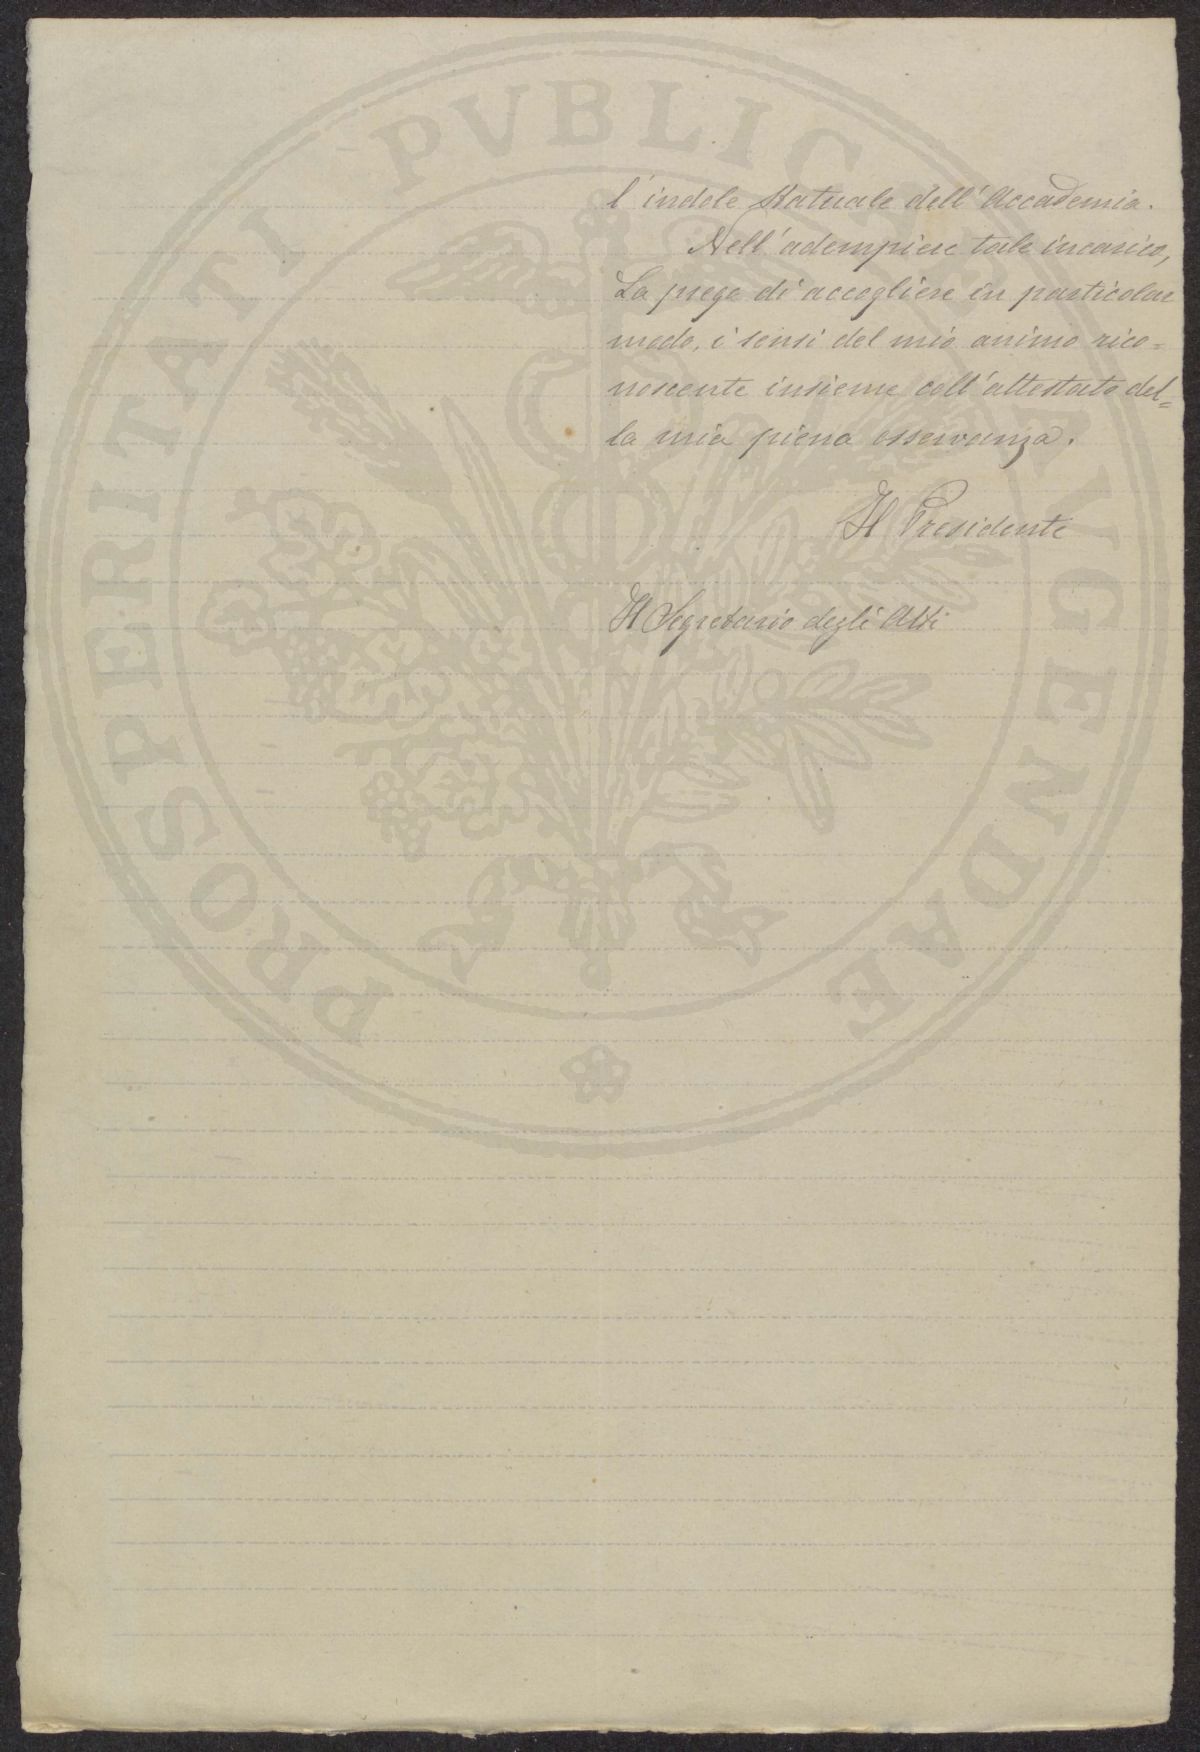 l'indole statuale dell'Accademia.
Nell'adempiere tale incarico,
La prego di accogliere in particolar
modo, i sensi del mio animo rico=
noscente insieme coll'attestato del=
la mia piena osservanza.
Il Presidente
Il Segretario degli Atti
PROSPERITATI PVBLICAE AVGENDAE